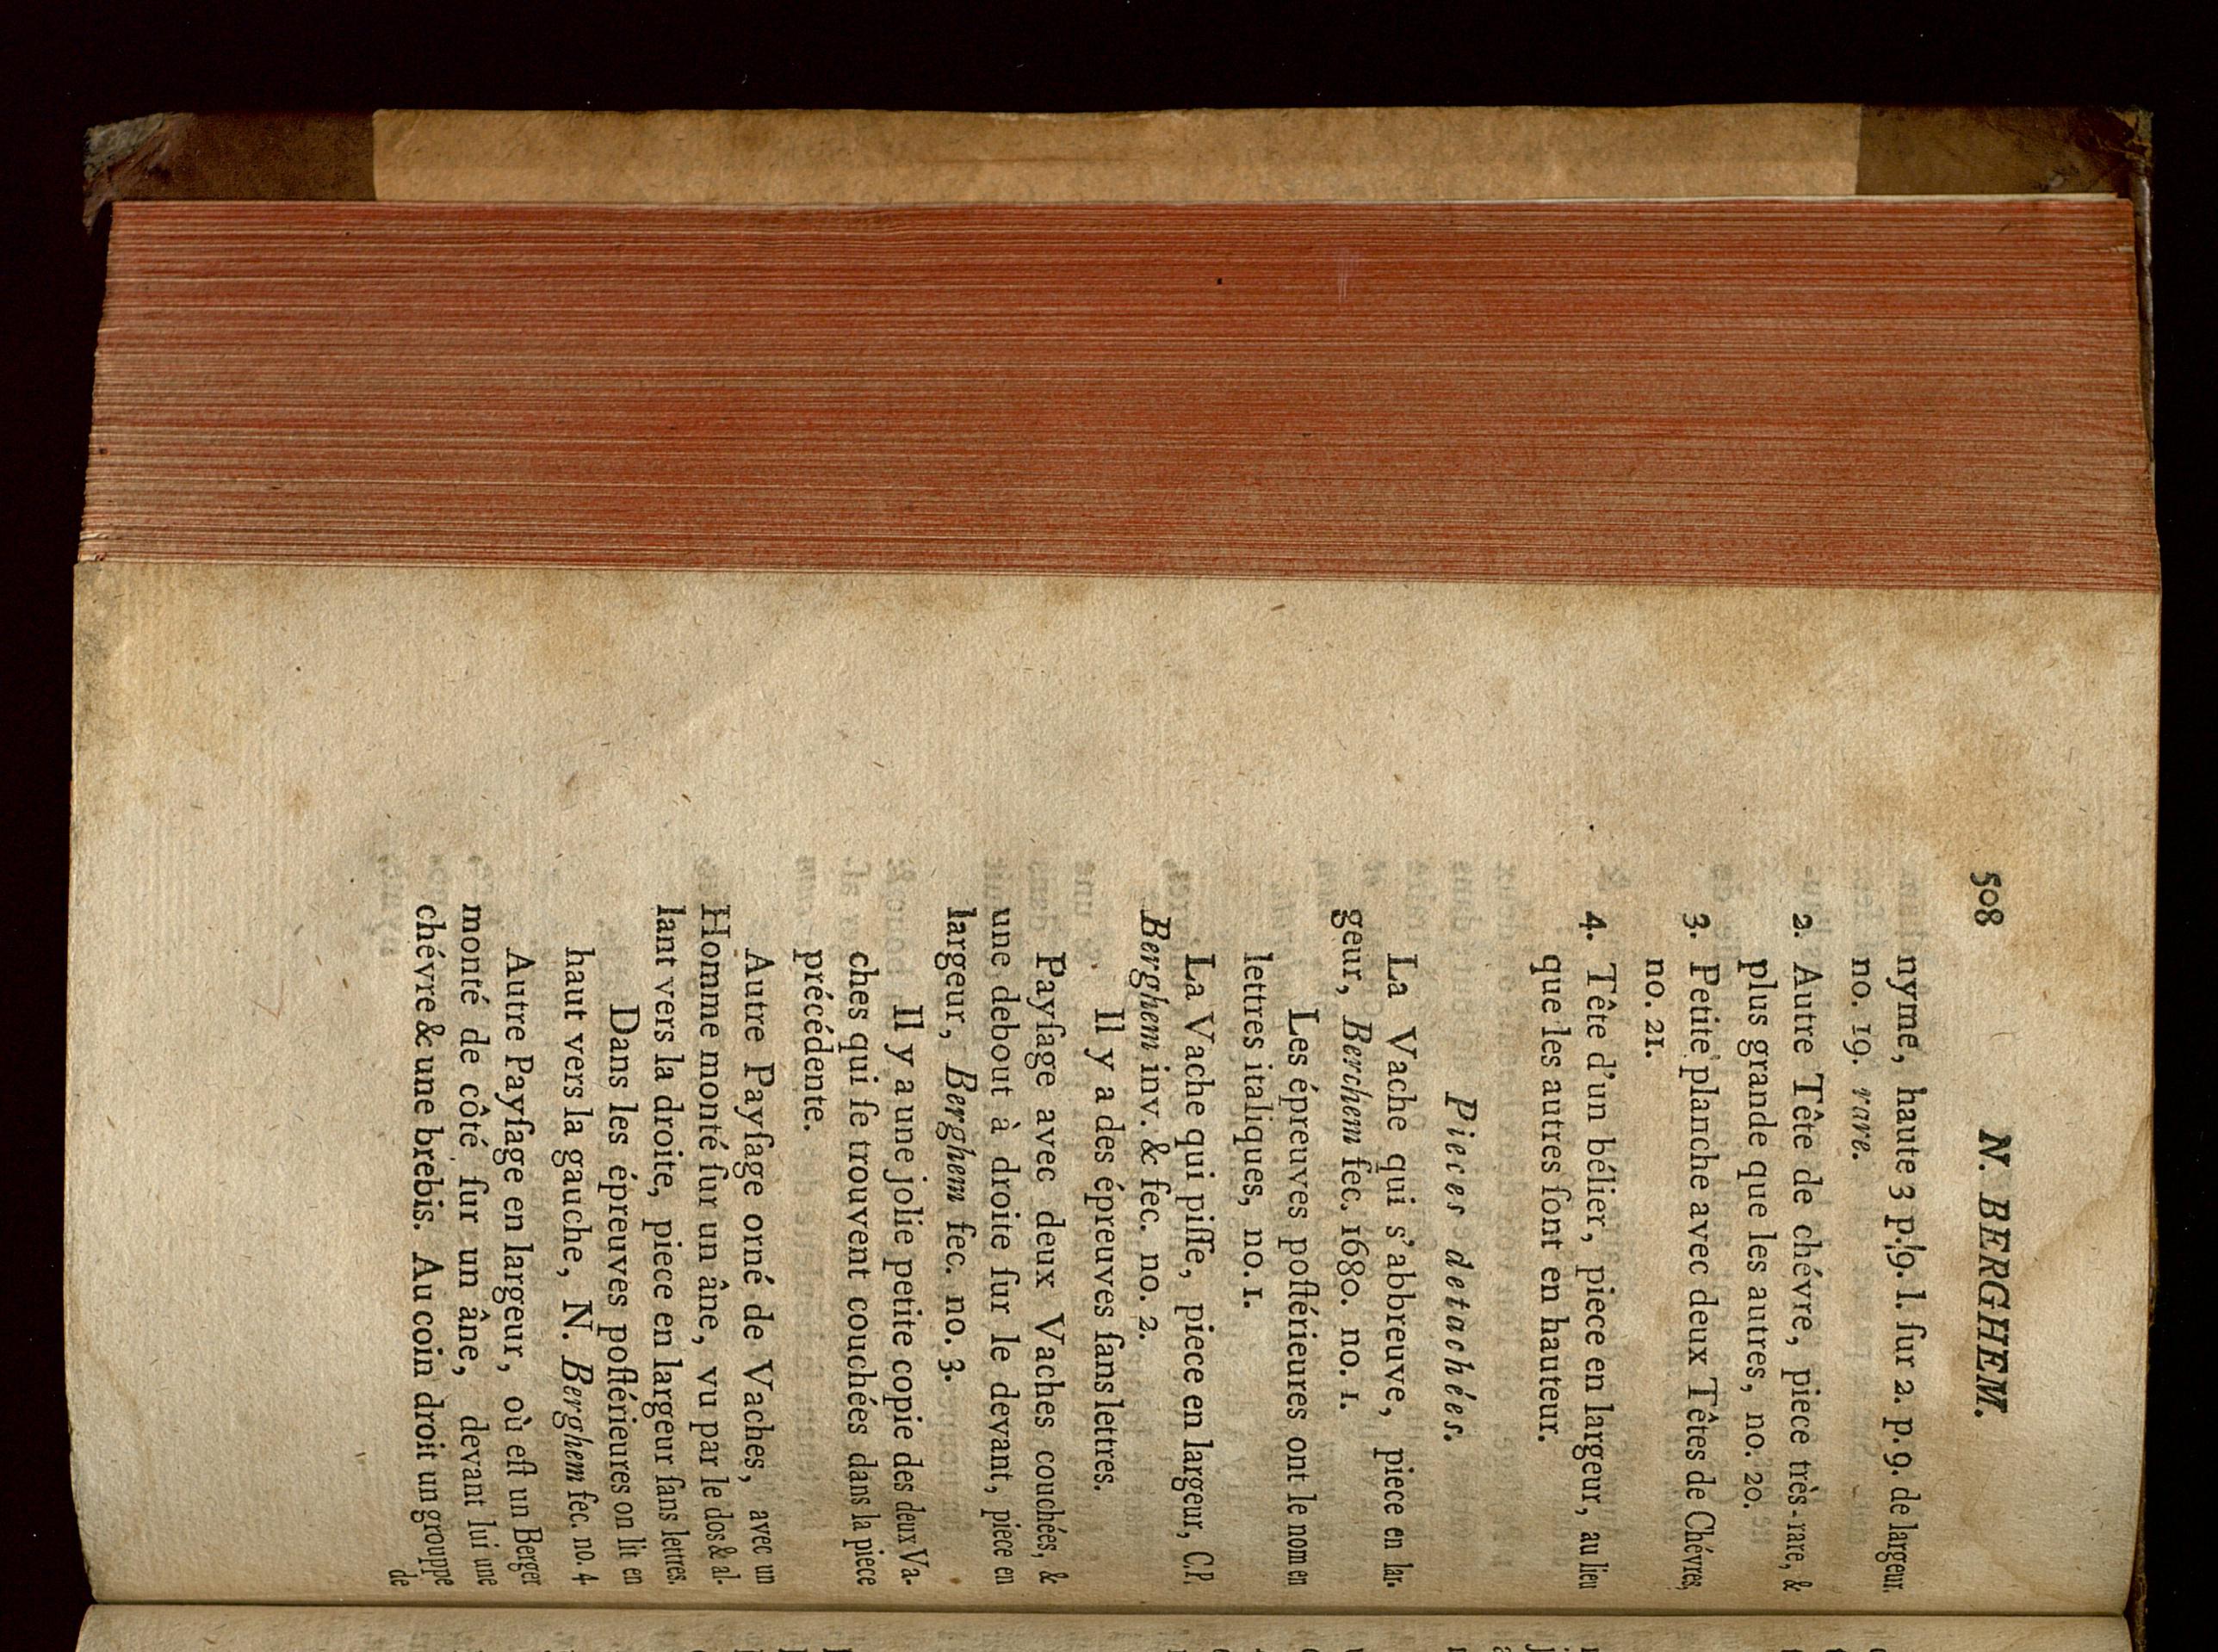 508 N. BERGHEM.
nyme, haute 3 p. 9. l. ſur 2. p. 9. de largeur.
no. 19. rare.
2. Autre Tête de chévre, piece très-rare, &
plus grande que les autres, no. 20.
3. Petite planche avec deux Têtes de Chévres,
no. 21.
4. Tête d'un bélier, piece en largeur, au lieu
que les autres ſont en hauteur.
Pieces detachées.
La Vache qui s'abbreuve, piece en lar-
geur, Berchem fec. 1680. no. 1.
Les épreuves poſtérieures ont le nom en
lettres italiques, no. 1.
La Vache qui piſſe, piece en largeur, C.P.
Berghem inv. & fec. no. 2.
Il y a des épreuves ſans lettres.
Payſage avec deux Vaches couchées, &
une debout à droite ſur le devant, piece en
largeur, Berghem fec. no. 3.
Il y a une jolie petite copie des deux Va-
ches qui ſe trouvent couchées dans la piece
précédente.
Autre Payſage orné de Vaches, avec un
Homme monté ſur un âne, vu par le dos & al-
lant vers la droite, piece en largeur ſans lettres.
Dans les épreuves poſtérieures on lit en
haut vers la gauche, N. Berghem fec. no. 4.
Autre Payſage en largeur, où eſt un Berger
monté de côté ſur un âne, devant lui une
chévre & une brebis. Au coin droit un grouppe
de